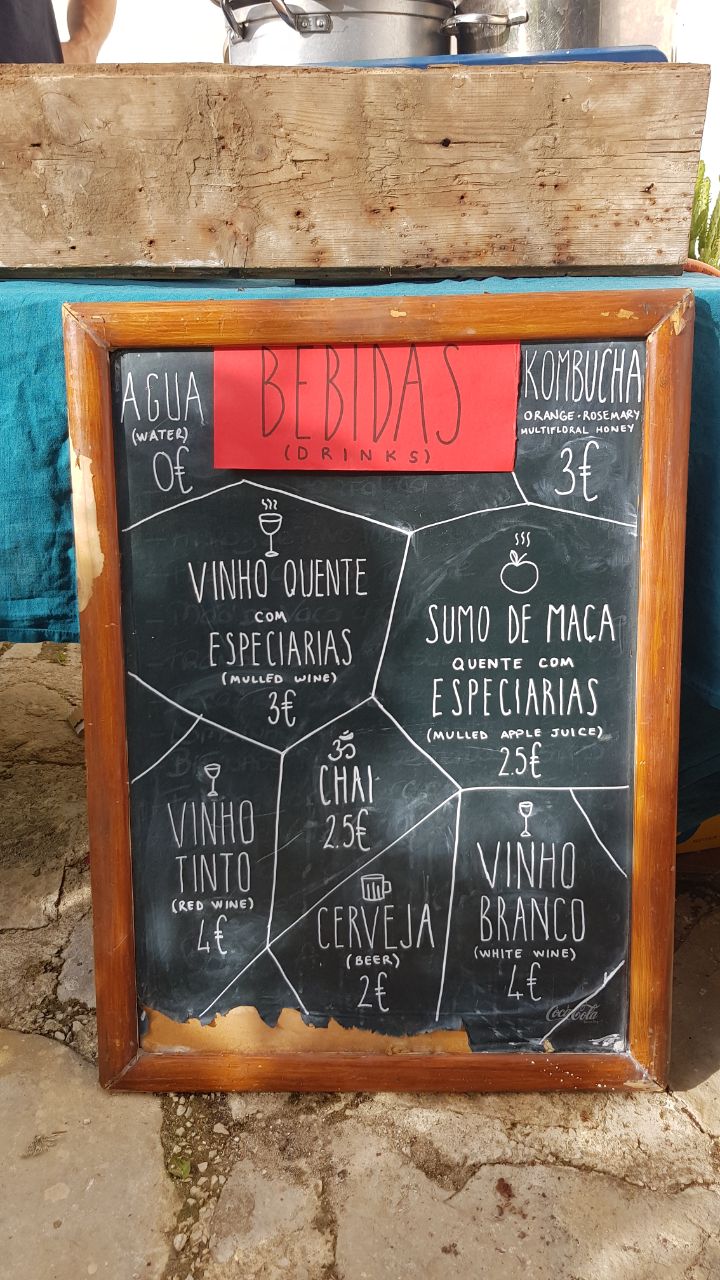 BEBIDAS
(DRINKS)
AGUA
(WATER)
0€
KOMBUCHA
ORANGE · ROSEMARY
MULTIFLORAL HONEY
3€
VINHO QUENTE
COM
ESPECIARIAS
(MULLED WINE)
3€
SUMO DE MAÇA
QUENTE COM
ESPECIARIAS
(MULLED APPLE JUICE)
2.5€
VINHO
TINTO
(RED WINE)
4€
ॐ
CHAI
2.5€
CERVEJA
(BEER)
2€
VINHO
BRANCO
(WHITE WINE)
4€
Coca-Cola